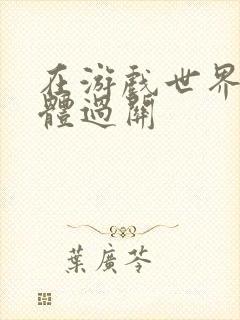 在游戏世界
體過關
葉廣芩